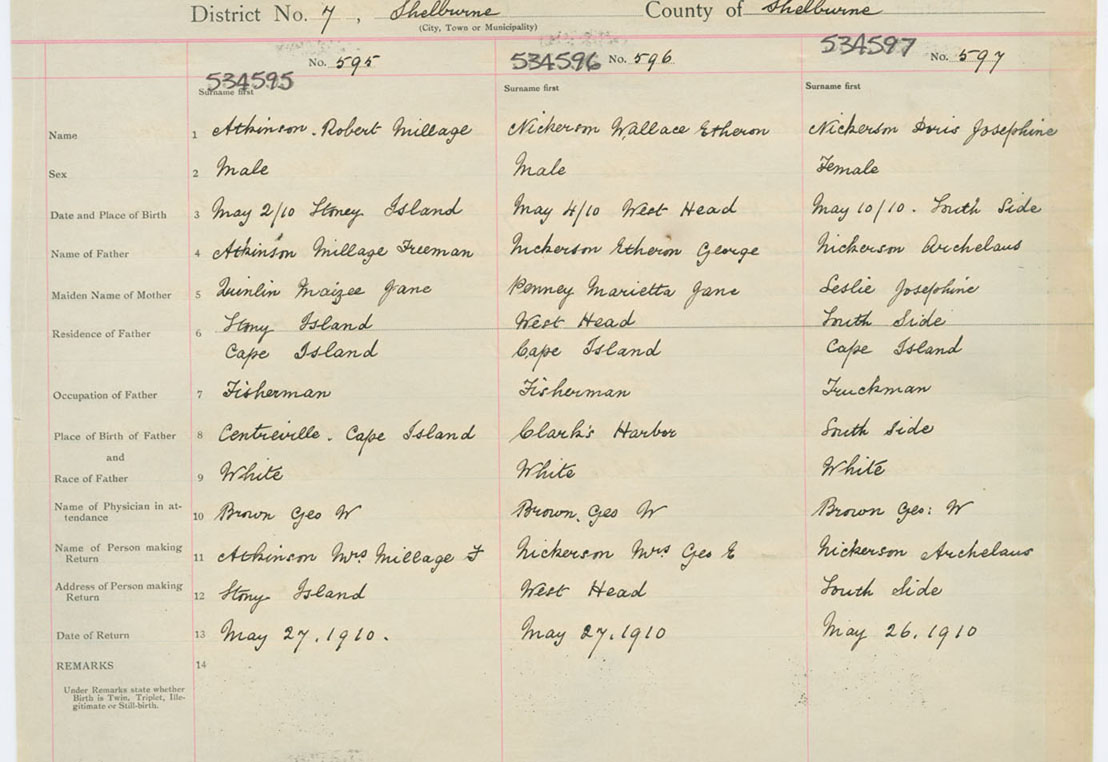 District No. 7, Shelburne County of Shelburne
(City, Town or Municipality)
534595 No. 595 534596 No. 596 534597 No. 597
Surname first Surname first Surname first
Name 1 Atkinson. Robert Millage Nickerson Wallace Etheron Nickerson Doris Josephine
Sex 2 Male Male Female
Date and Place of Birth 3 May 2/10 Stoney Island May 4/10 West Head May 10/10. South Side
Name of Father 4 Atkinson Millage Freeman Nickerson Etheron George Nickerson Archelaus
Maiden Name of Mother 5 Quinlin Maizee Jane Penney Marietta Jane Leslie Josephine
Residence of Father 6 Stony Island West Head South Side
Cape Island Cape Island Cape Island
Occupation of Father 7 Fisherman Fisherman Truckman
Place of Birth of Father 8 Centreville. Cape Island Clark's Harbor South Side
and
Race of Father 9 White White White
Name of Physician in at-
tendance 10 Brown Geo W Brown. Geo W Brown Geo: W
Name of Person making
Return 11 Atkinson Mrs. Millage F Nickerson Mrs Geo E Nickerson Archelaus
Address of Person making
Return 12 Stony Island West Head South Side
Date of Return 13 May 27, 1910. May 27, 1910 May 26, 1910
REMARKS 14
Under Remarks state whether
Birth is Twin, Triplet, Ille-
gitimate or Still-birth.